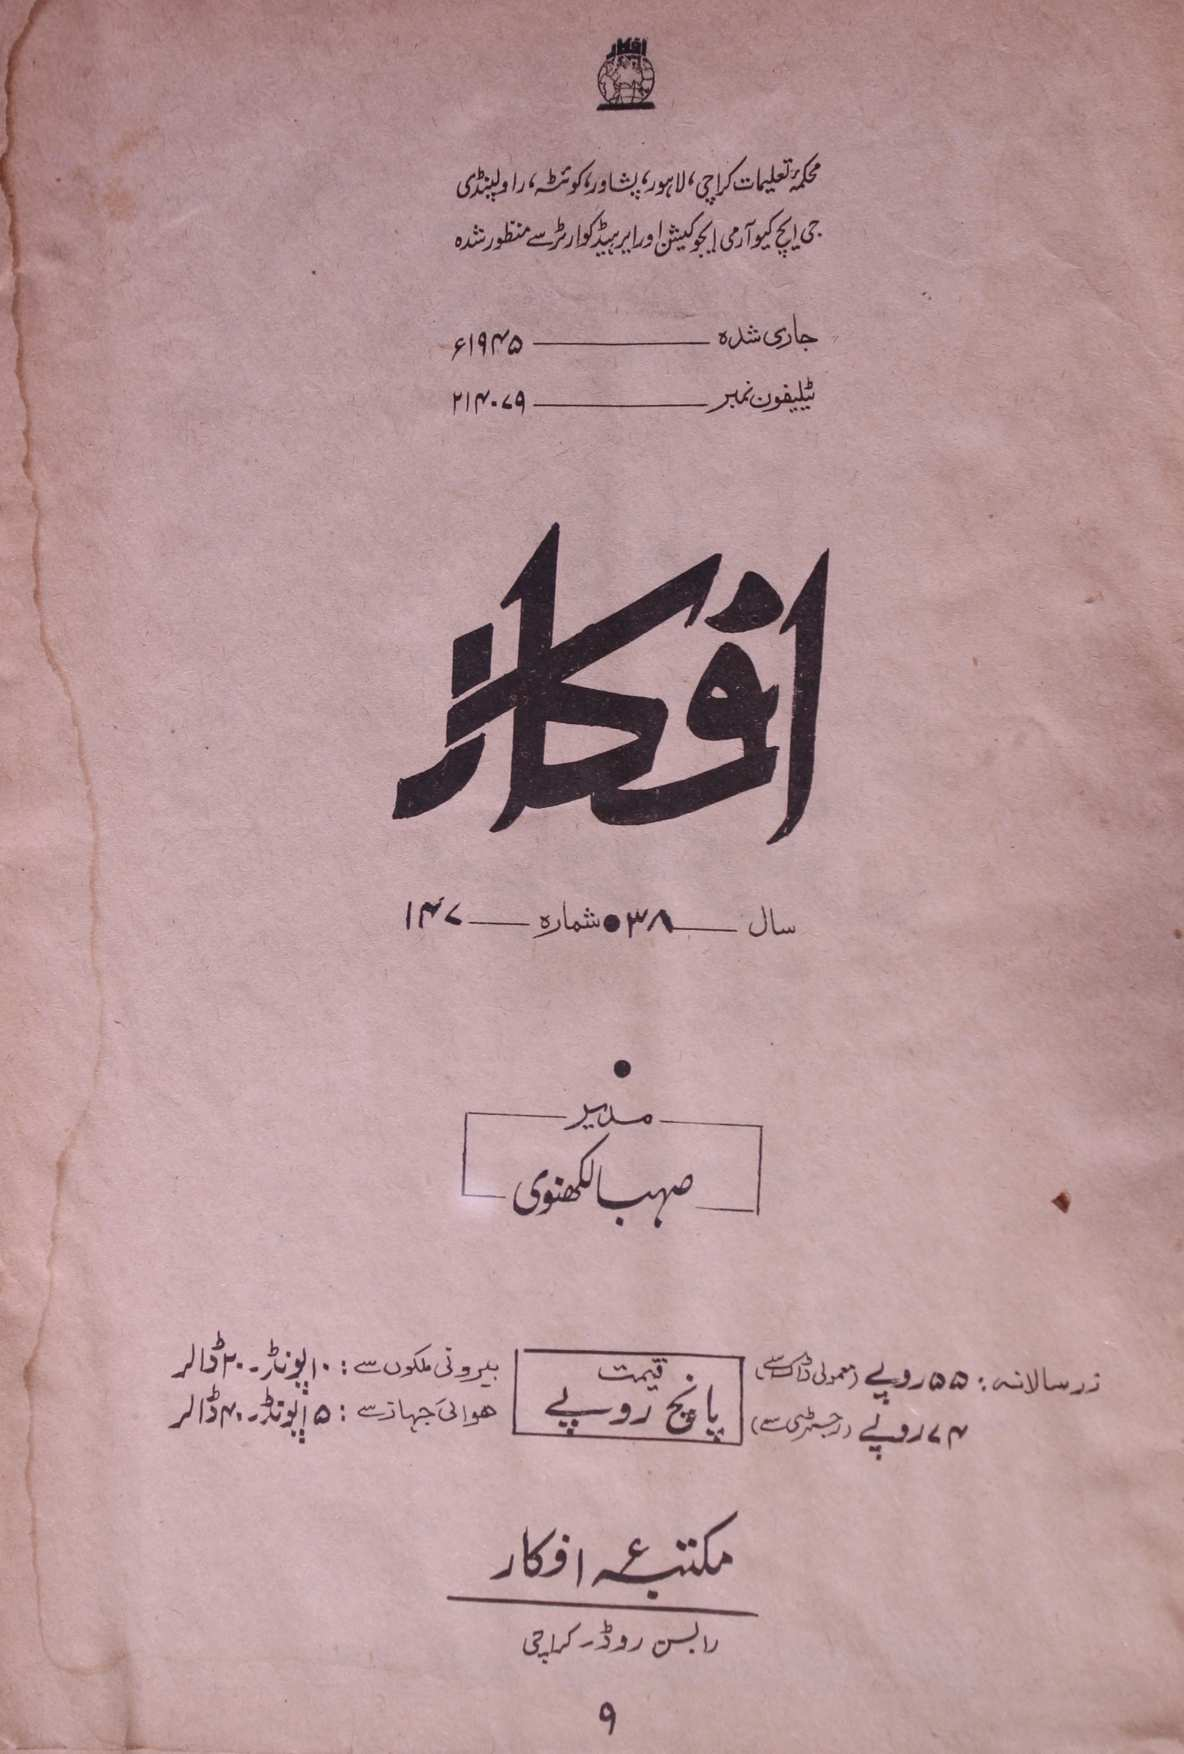 افکار
محکمۂ تعلیمات کراچی، لاہور، پشاور، کوئٹہ، راولپنڈی
جی ایچ کیو آرمی ایجوکیشن اور ایر ہیڈ کوارٹر سے منظور شدہ
جاری شدہ ــــــ ۱۹۴۵ء
ٹیلیفون نمبر ــــــ ۲۱۴۰۷۹
افکار
سال ــــــ ۳۸ ● شمارہ ــــــ ۱۴۷
●
مدیر
صہبا لکھنوی
زر سالانہ: ۵۵ روپے (معمولی ڈاک سے)
۷۴ روپے (رجسٹری سے)
قیمت
پانچ روپے
بیرونی ملکوں سے: ۱۰ پونڈ۔ ۲۰ ڈالر
ہوائی جہاز سے: ۱۵ پونڈ۔ ۴۰ ڈالر
مکتبۂ افکار
رابسن روڈ۔ کراچی
۹